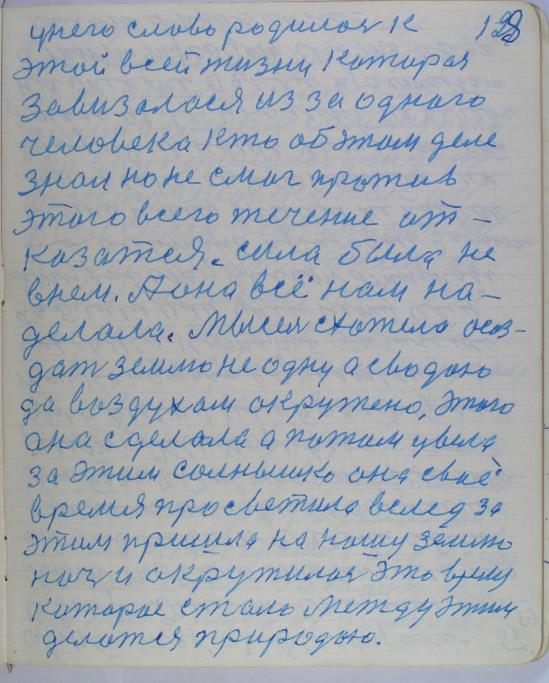 унего слово родилося к 128
этой всей жизни которая
завизолася из за одного
человека кто об этом деле
знал но не смог против
этого всего течение от-
козатся. сила была не
внем. А она всё нам на-
делала. Мысея схотела ооз-
дат землю не одну а сводою
да воздухом окружено, этого
она сделала а потом увела
за этим солнышко она своё
время просветила вслед за
этим пришла на нашу землю
ноч и окружилоя это время
которое стало между этим
делатся природою.